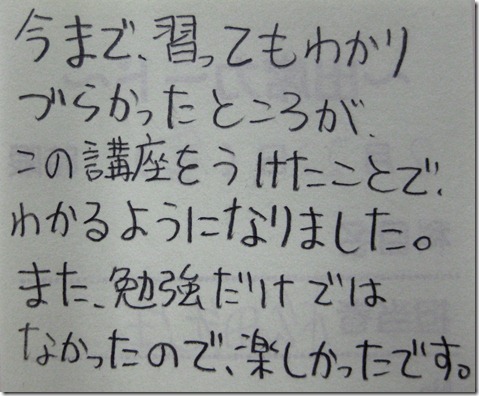 今まで、習ってもわかり
づらかったところが、
この講座をうけたことで、
わかるようになりました。
また、勉強だけでは
なかったので、楽しかったです。